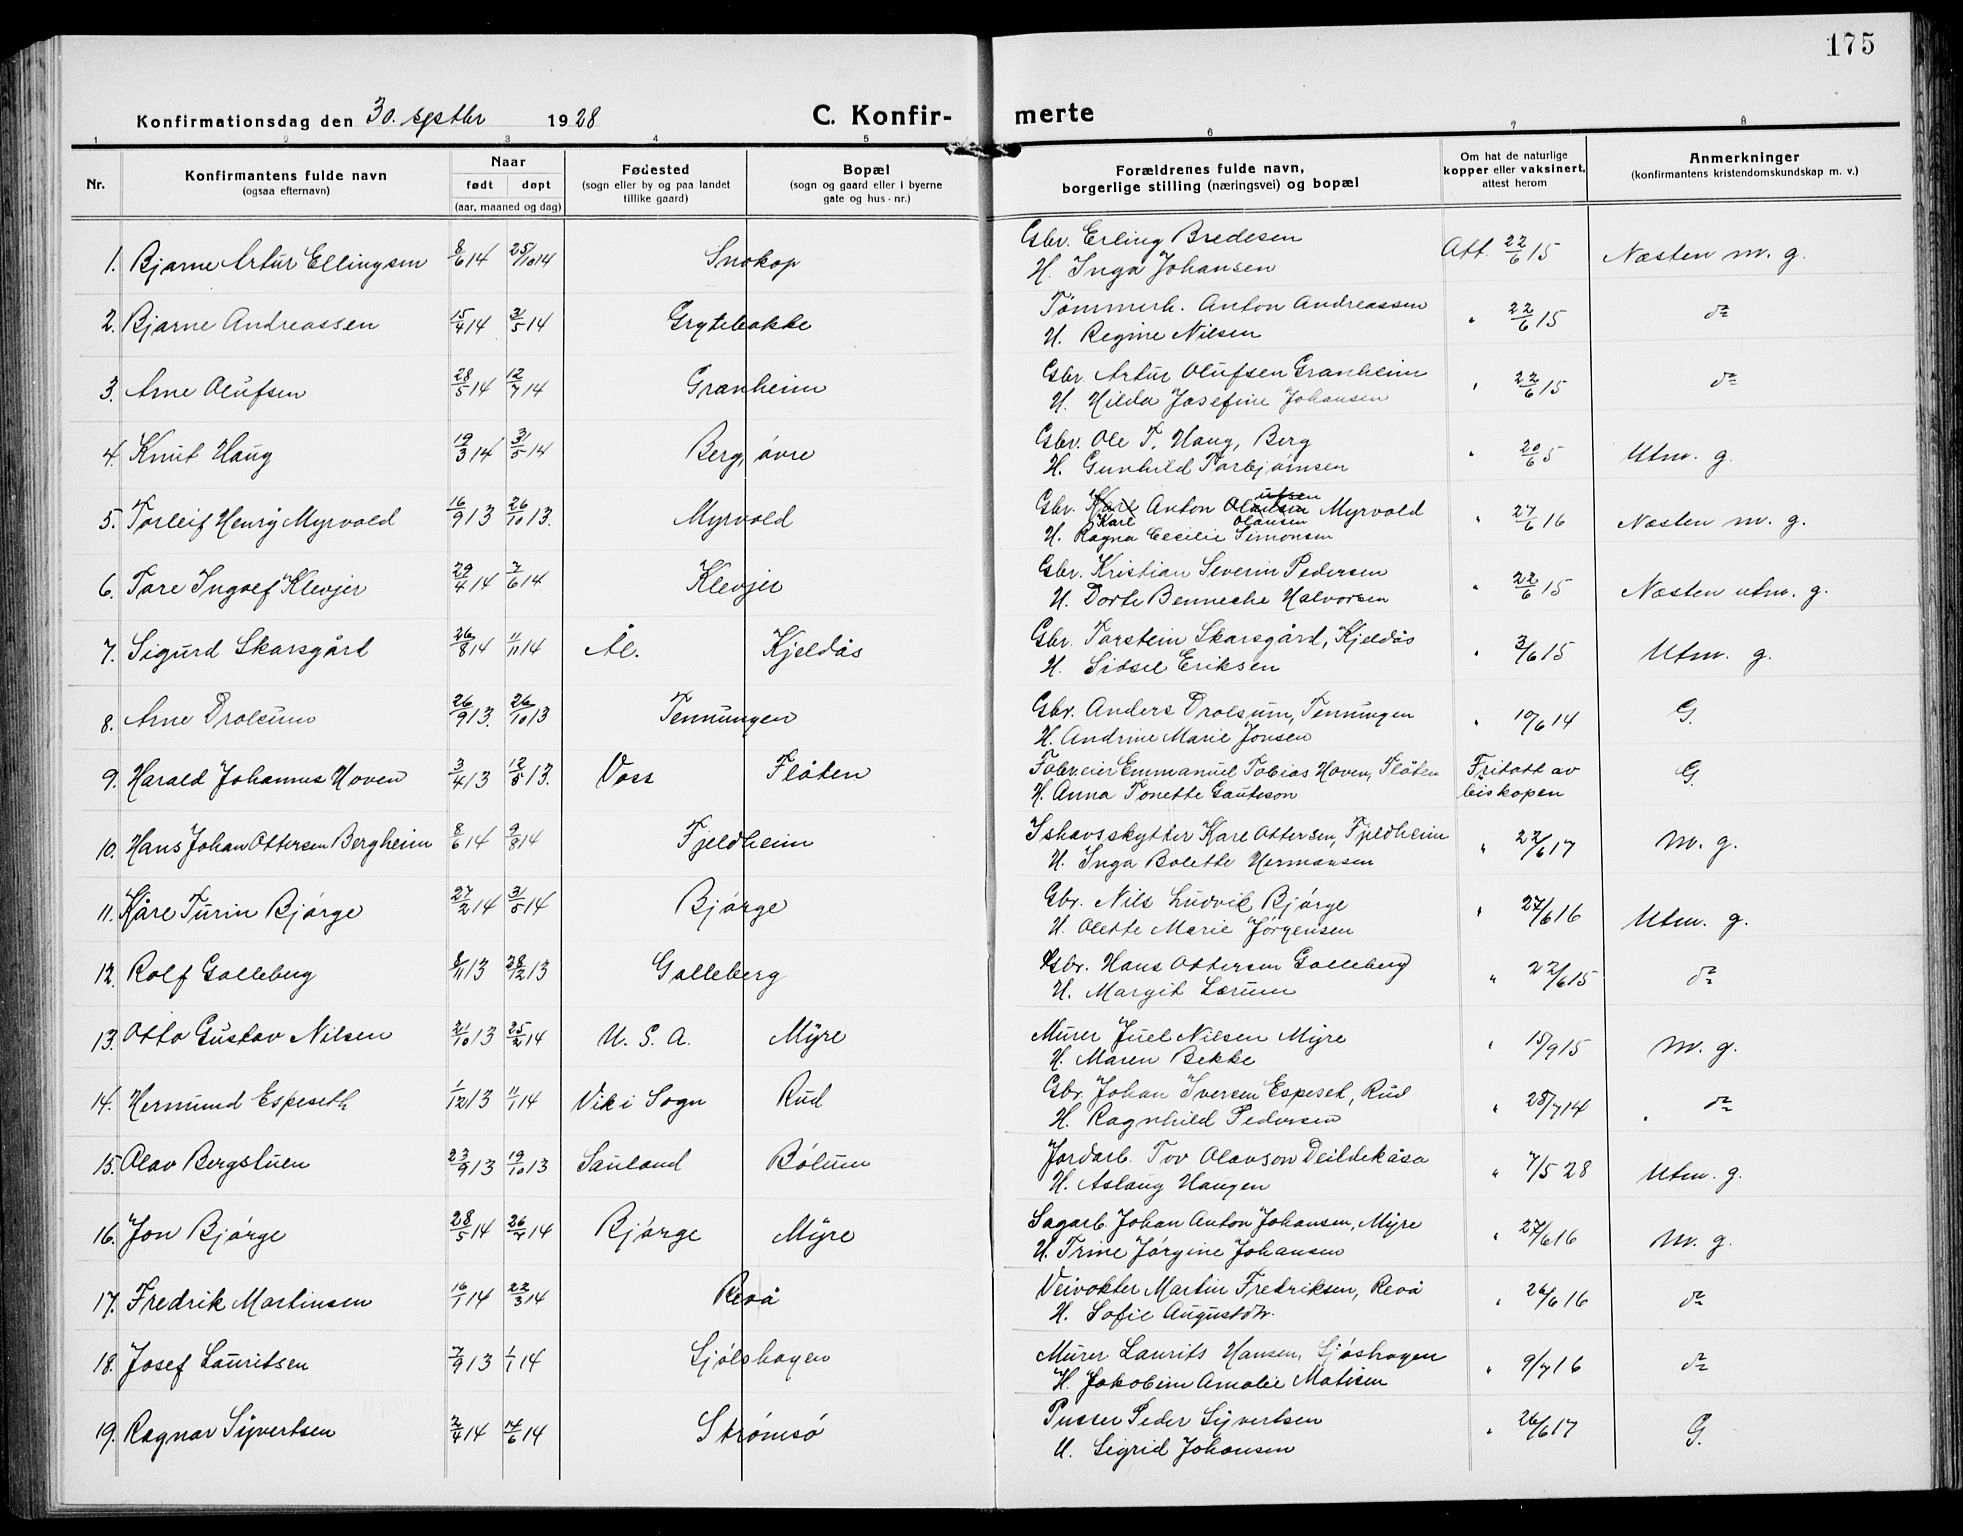 175
Konfirmationsdag den 30. septbr 1928 C. Konfir- merte
1 2 3 4 5 6 7 8
Nr. Konfirmantens fulde navn (ogsaa efternavn) Naar født døpt (aar, maaned og dag) Fødested (sogn eller by og paa landet tillike gaard) Bopæl (sogn og gaard eller i byerne gate og hus-nr.) Forældrenes fulde navn, borgerlige stilling (næringsvei) og bopæl Om hat de naturlige kopper eller vaksinert, attest herom Anmerkninger (konfirmantens kristendomskundskap m. v.)
1. Bjarne Artur Ellingsen 8/6 14 25/10 14 Snokop Gbr. Erling Bredesen Att. 22/6 15 Næsten m. g.
H. Inga Johansen
2. Bjarne Andreassen 15/4 14 31/5 14 Grytebakke Tømmerh. Anton Andreassen " 22/6 15 do
H. Regine Nilsen
3. Arne Olufsen 28/5 14 12/7 14 Granheim Gbr. Artur Olufsen Granheim " 22/6 15 do
H. Hilda Josefine Johansen
4. Knut Haug 19/3 14 31/5 14 Berg, øvre Gbr. Ole T. Haug, Berg " 20/6 5 Utm. g.
H. Gunhild Torbjørnsen
5. Torleif Henry Myrvold 16/9 13 26/10 13. Myrvold Gbr. Karl Anton Olausen Myrvold " 27/6 16 Næsten m. g.
Karl Olausen
H. Ragna Cecilie Simonsen
6. Tore Ingolf Klevjer 29/4 14 7/6 14. Klevjer Gbr. Kristian Severin Pedersen " 22/6 15 Næsten utm. g.
H. Dorte Benneche Halvorsen
7. Sigurd Skarsgård 26/8 14 11/11 14 Ål. Kjeldås Gbr. Torstein Skarsgård, Kjeldås " 3/6 15 Utm. g.
H. Sidsel Eriksen
8. Arne Drolsum 26/9 13. 26/10 13 Tennungen Gbr. Anders Drolsum, Tenningen " 10/6 14 G.
H. Andrine Marie Jonsen
9. Harald Johannes Hoven 3/4 13 12/5 13. Voss Flåten Fabr.eier Emmanuel Tobias Hoven, Flåten Fritatt av G.
H. Anna Tonette Gauteson biskopen
10. Hans Johan Ottersen Bergheim 8/6 14 9/8 14 Fjeldheim Ishavsskytter Karl Ottersen, Fjeldheim " 22/6 17 M. g.
H. Inga Bolette Hermansen
11. Kåre Turin Bjørge 27/2 14 31/5 14 Bjørge Gbr. Nils Ludvik Bjørge " 27/6 16 Utm. g.
H. Olette Marie Jørgensen
12. Rolf Golleberg 8/11 13 28/12 13 Golleberg Gbr. Hans Ottersen Golleberg " 22/6 15 do
H. Margit Lørum
13. Otto Gustav Nilsen 21/10 13 25/2 14 U. S. A. Myre Murer Juel Nilsen Myre " 15/9 15 M. g.
H. Maren Bekke
14. Hermund Espeseth 1/12 13 11/1 14 Vik i Sogn Rud Gbr. Johan Iversen Espeset, Rud " 28/7 14 do
H. Ragnhild Pedersen
15. Olav Bergstuen 23/9 13 19/10 13 Sauland Bølum Jordarb. Tov Olavson Deildekåsa " 7/5 28 Utm. g.
H. Aslaug Haugen
16. Jon Bjørge 28/5 14 26/7 14 Bjørge Myre Sagarb. Johan Anton Johansen, Myre " 27/6 16 M. g.
H. Trine Jørgine Johansen
17. Fredrik Martinsen 16/1 14 22/3 14 Revå Veivokter Martin Fredriksen, Revå " 26/6 16 do
H. Sofie Augustdtr.
18. Josef Lauritsen 7/9 13 1/1 14 Sjølshagen Murer Laurits Hansen, Sjøshagen " 9/7 16 do
H. Jakobine Amalie Matisen
19. Ragnar Syvertsen 2/4 14 14/6 14 Strømsø Pusser Peder Syvertsen " 26/6 17 G.
H. Sigrid Johansen